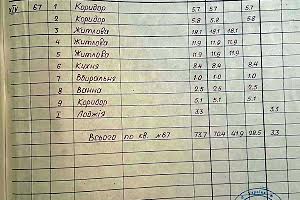 XIV 67 1 Коридор 5.7 5.7 5.7
2 Коридор 5.8 5.8 5.8
3 Житлова 18.1 18.1 18.1
4 Житлова 11.9 11.9 11.9
5 Житлова 11.9 11.9 11.9
6 Кухня 8.4 8.4 8.4
7 Вбиральня 1.0 1.0 1.0
8 Ванна 2.5 2.5 2.5
9 Коридор 5.1 5.1 5.1
I Лоджія 3.3 3.3
Всього по кв. №67 73.7 70.4 41.9 28.5 3.3